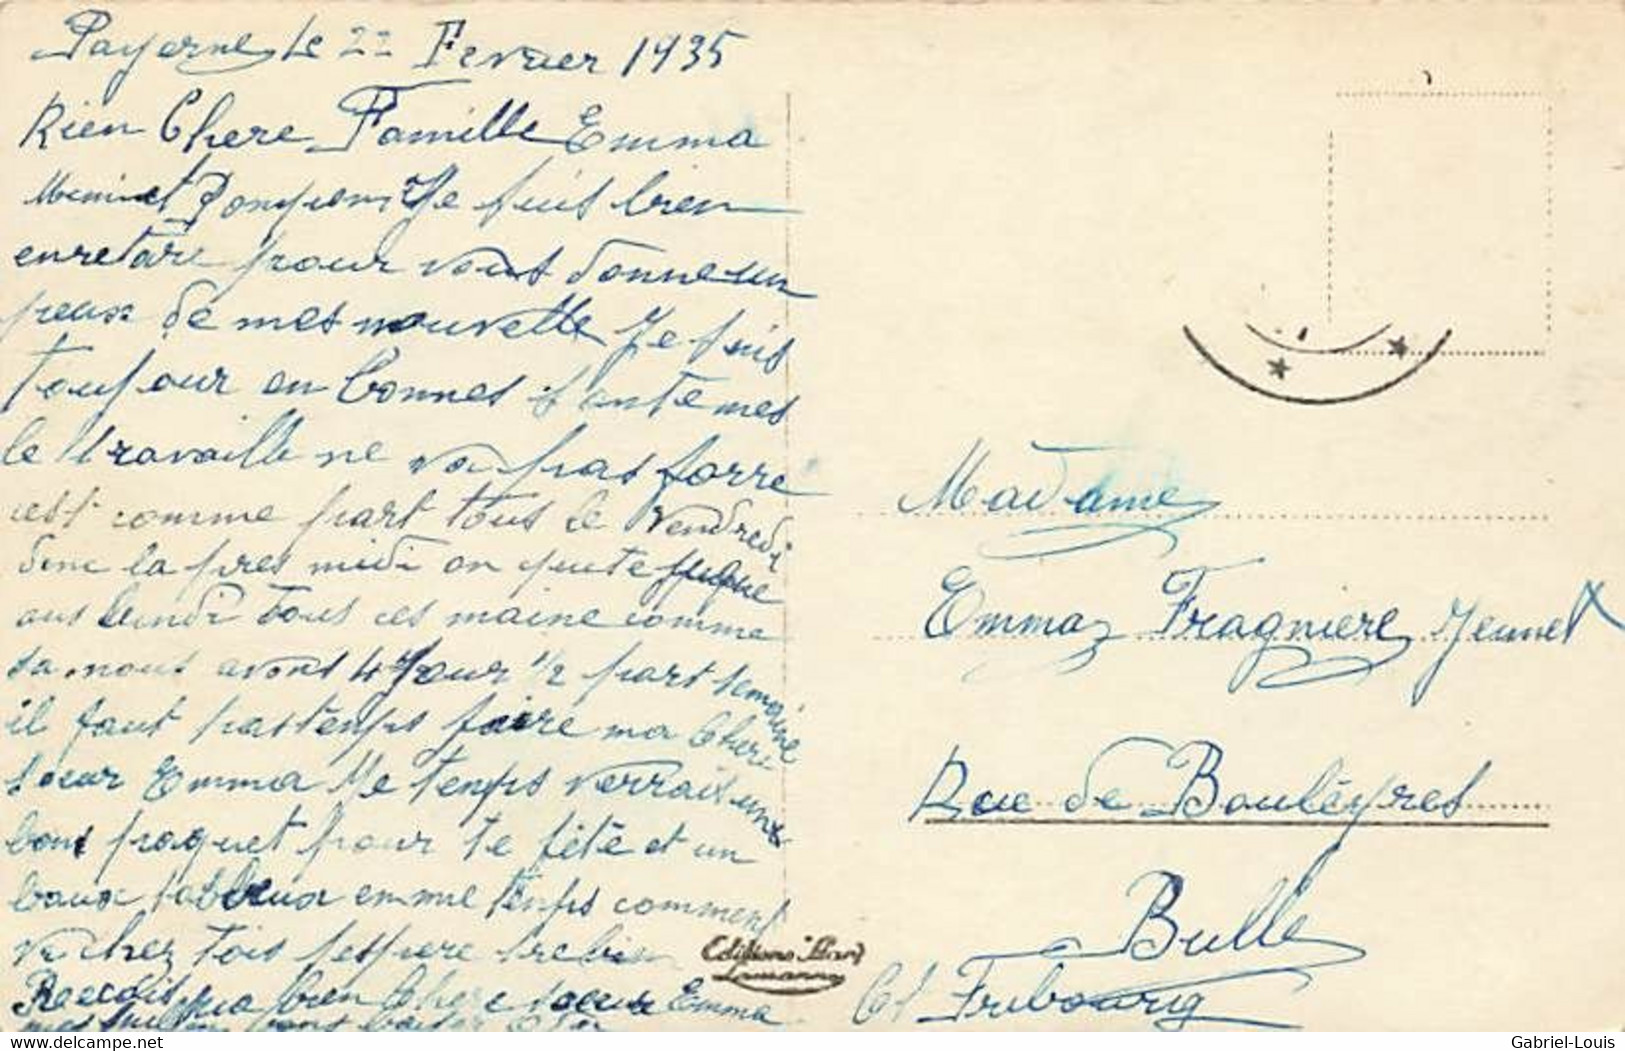 Payerne le 22 Fevrier 1935
Rien Chere Famille Emma
et Je suis bien
enretare pour vous donne un
peux de mes nouvelle Je suis
toujour en bonnes santé mes
le travaille ne va pas forre
cest comme part tous le vendredi
donc la pres midi on quite juque
aus lundi tous ces maine comme
sa nous avons 4 Jour 1/2 part semaine
il faut pas temps faire ma Chere
soeur Emma Je temps verrais un
bons paquet pour te fête et un
baux tableux emme temps comment
va chez tois jespere tre bien
Recois bien Chere soeur Emma
mes bons
Editions "Pari"
Lausanne
Madame
Emma Fragniere Jennet
Rue de Bouléyres
Bulle
Ct Fribourg
Gabriel-Louis